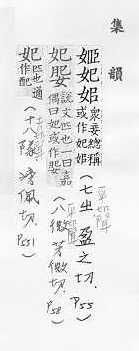 集韻
姬妃 衆妾總稱或作妃 (七之 盈之切. P55)
妃 說文匹也一曰嘉偶曰妃或作 (八微 芳微切. P58)
妃 匹也通作配 (十八隊 滂佩切. P531)